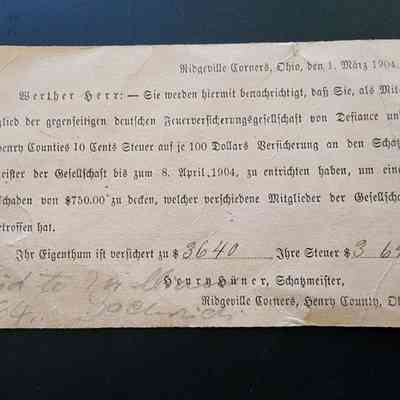 Ridgeville Corners, Ohio, den 1. März 1904.
Werther Herr: — Sie werden hiermit benachrichtigt, daß Sie, als Mit
glied der gegenseitigen deutschen Feuerversicherungsgesellschaft von Defiance un
Henry Counties 10 Cents Steuer auf je 100 Dollars Versicherung an den Schatz
meister der Gesellschaft bis zum 8. April, 1904, zu entrichten haben, um eine
Schaden von $750.00 zu decken, welcher verschiedene Mitglieder der Gesellscha
etroffen hat.
Ihr Eigenthum ist versichert zu $ 3640 Ihre Steuer $ 3 64
Henry Hüner, Schatzmeister,
Ridgeville Corners, Henry County, O